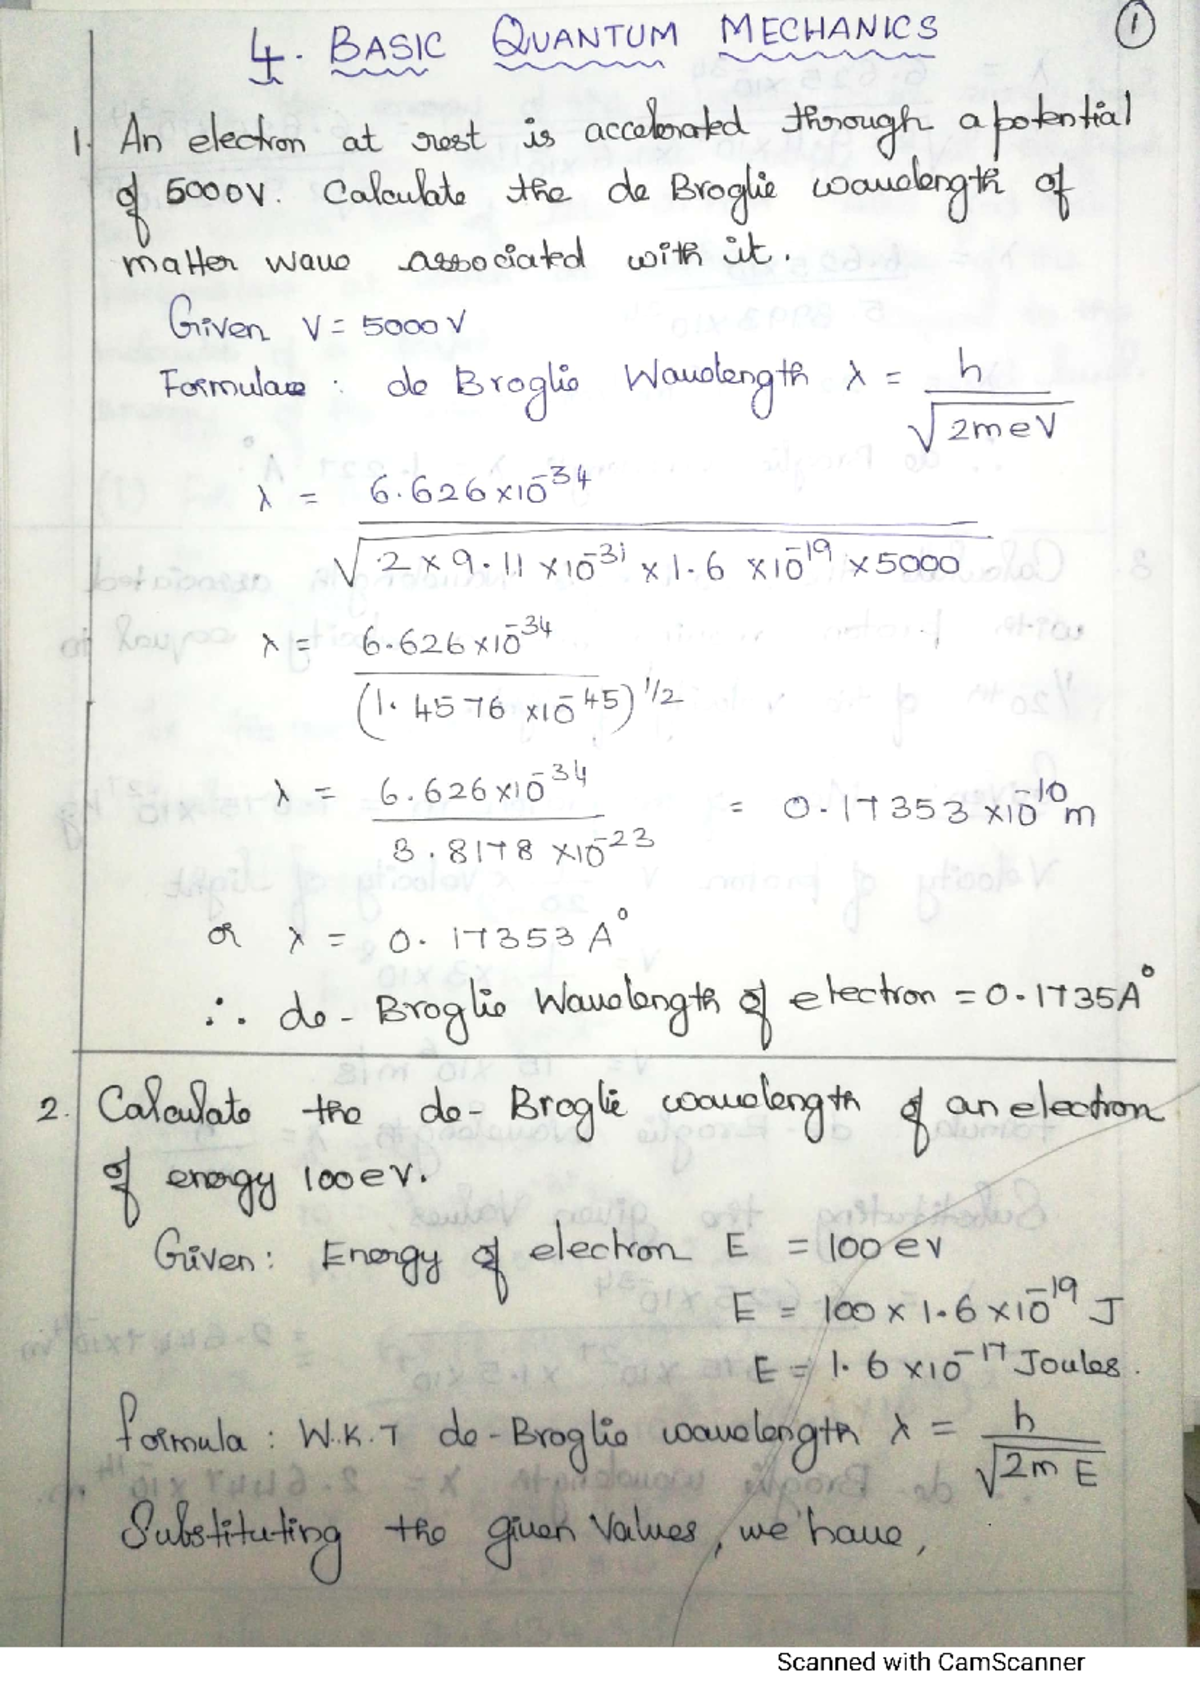 1
4. BASIC QUANTUM MECHANICS
1. An electron at rest is accelerated through a potential
of 5000V. Calculate the de Broglie wavelength of
matter wave associated with it.
Given V = 5000V
Formulae : de Broglie Wavelength λ = h / √2meV
λ = 6.626 x10^-34 / √2 x 9.11 x10^-31 x 1.6 x10^-19 x 5000
λ = 6.626 x10^-34 / (1.4576 x10^-45)^1/2
λ = 6.626 x10^-34 / 3.8178 x10^-23 = 0.17353 x10^-10 m
or λ = 0.17353 A°
∴ de-Broglie Wavelength of electron = 0.1735A°
2. Calculate the de-Broglie wavelength of an electron
of energy 100ev.
Given: Energy of electron E = 100 ev
E = 100 x 1.6 x10^-19 J
E = 1.6 x10^-17 Joules.
formula : W.K.T de-Broglie wavelength λ = h / √2m E
Substituting the given values, we have,
Scanned with CamScanner